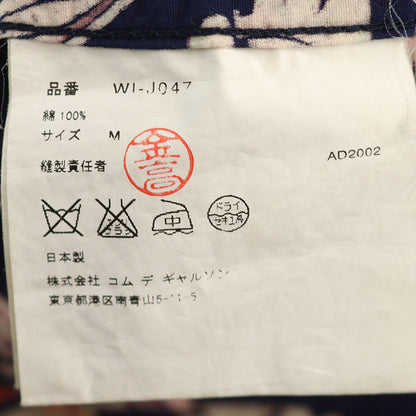 品番 WI-J047
綿 100%
サイズ M
縫製責任者
AD2002
中
ドライ
セキユ系
日本製
株式会社 コム デ ギャルソン
東京都港区南青山5-11-5